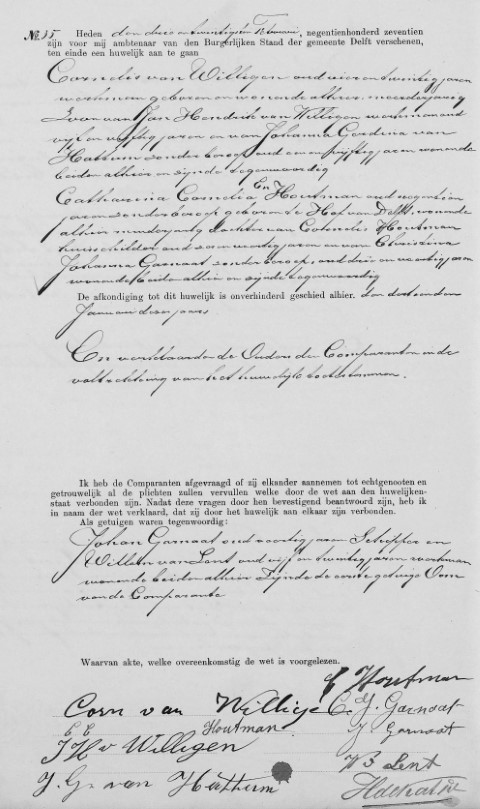 No. 35 Heden den drie en twintigsten Februari, negentienhonderd zeventien
zijn voor mij ambtenaar van den Burgerlijken Stand der gemeente Delft verschenen,
ten einde een huwelijk aan te gaan
Cornelis van Willigen oud vier en twintig jaren
werkman geboren en wonende alhier, meerderjarig
Zoon van Jan Hendrik van Willigen werkman oud
vijf en vijftig jaren en van Johanna Gerdina van
Hattum zonder beroep oud een en vijftig jaren wonende
beiden alhier en zijnde tegenwoordig
En
Catharina Cornelia Houtman oud negentien
jaren zonder beroep geboren te Hof van Delft, wonende
alhier minderjarig dochter van Cornelis Houtman
huisschilder oud en veertig jaren en van Christina
Johanna Garnaat zonder beroep, oud drie en veertig jaren
wonende beiden alhier en zijnde tegenwoordig
De afkondiging tot dit huwelijk is onverhinderd geschied alhier. den
Januari dezes jaars
En verklaarden de Ouders der Comparanten in de
voltrekking van het huwelijk toe te stemmen.
Ik heb de Comparanten afgevraagd of zij elkander aannemen tot echtgenooten en
getrouwelijk al de plichten zullen vervullen welke door de wet aan den huwelijken-
staat verbonden zijn. Nadat deze vragen door hen bevestigend beantwoord zijn, heb ik
in naam der wet verklaard, dat zij door het huwelijk aan elkaar zijn verbonden.
Als getuigen waren tegenwoordig:
Johan Garnaat oud veertig jaren Schipper en
Willem van Lent oud vijf en twintig jaren werkman
wonende beiden alhier Zijnde de eerste getuige Oom
van de Comparante
Waarvan akte, welke overeenkomstig de wet is voorgelezen.
C Houtman
Corn van Willige C. J. Garnaat
C C Houtman J Garnaat
J H v Willigen
W v Lent
J. G. van Hattum